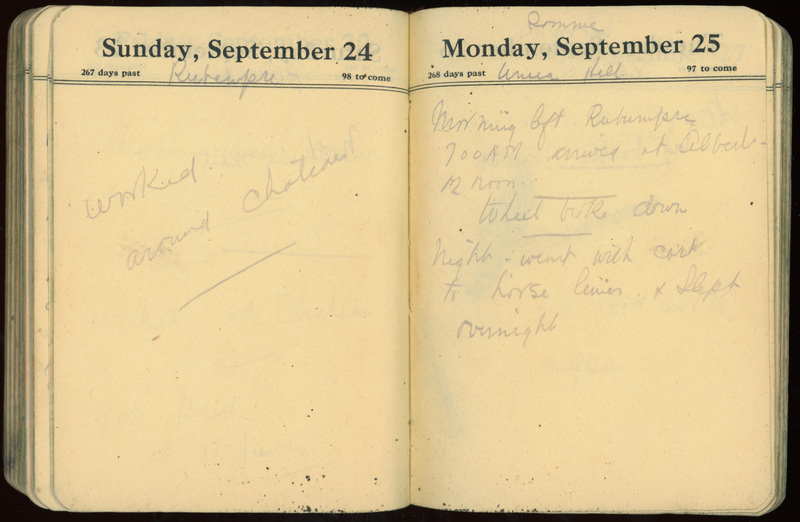 Sunday, September 24
267 days past
98 to come
Rubempre
worked
around chateau
Monday, September 25
268 days past
97 to come
Hill
Morning left Rubempre
700 AM arrived at Albert -
12 noon
Wheel broke down
Night - went with cart
to horse lines & slept
overnight